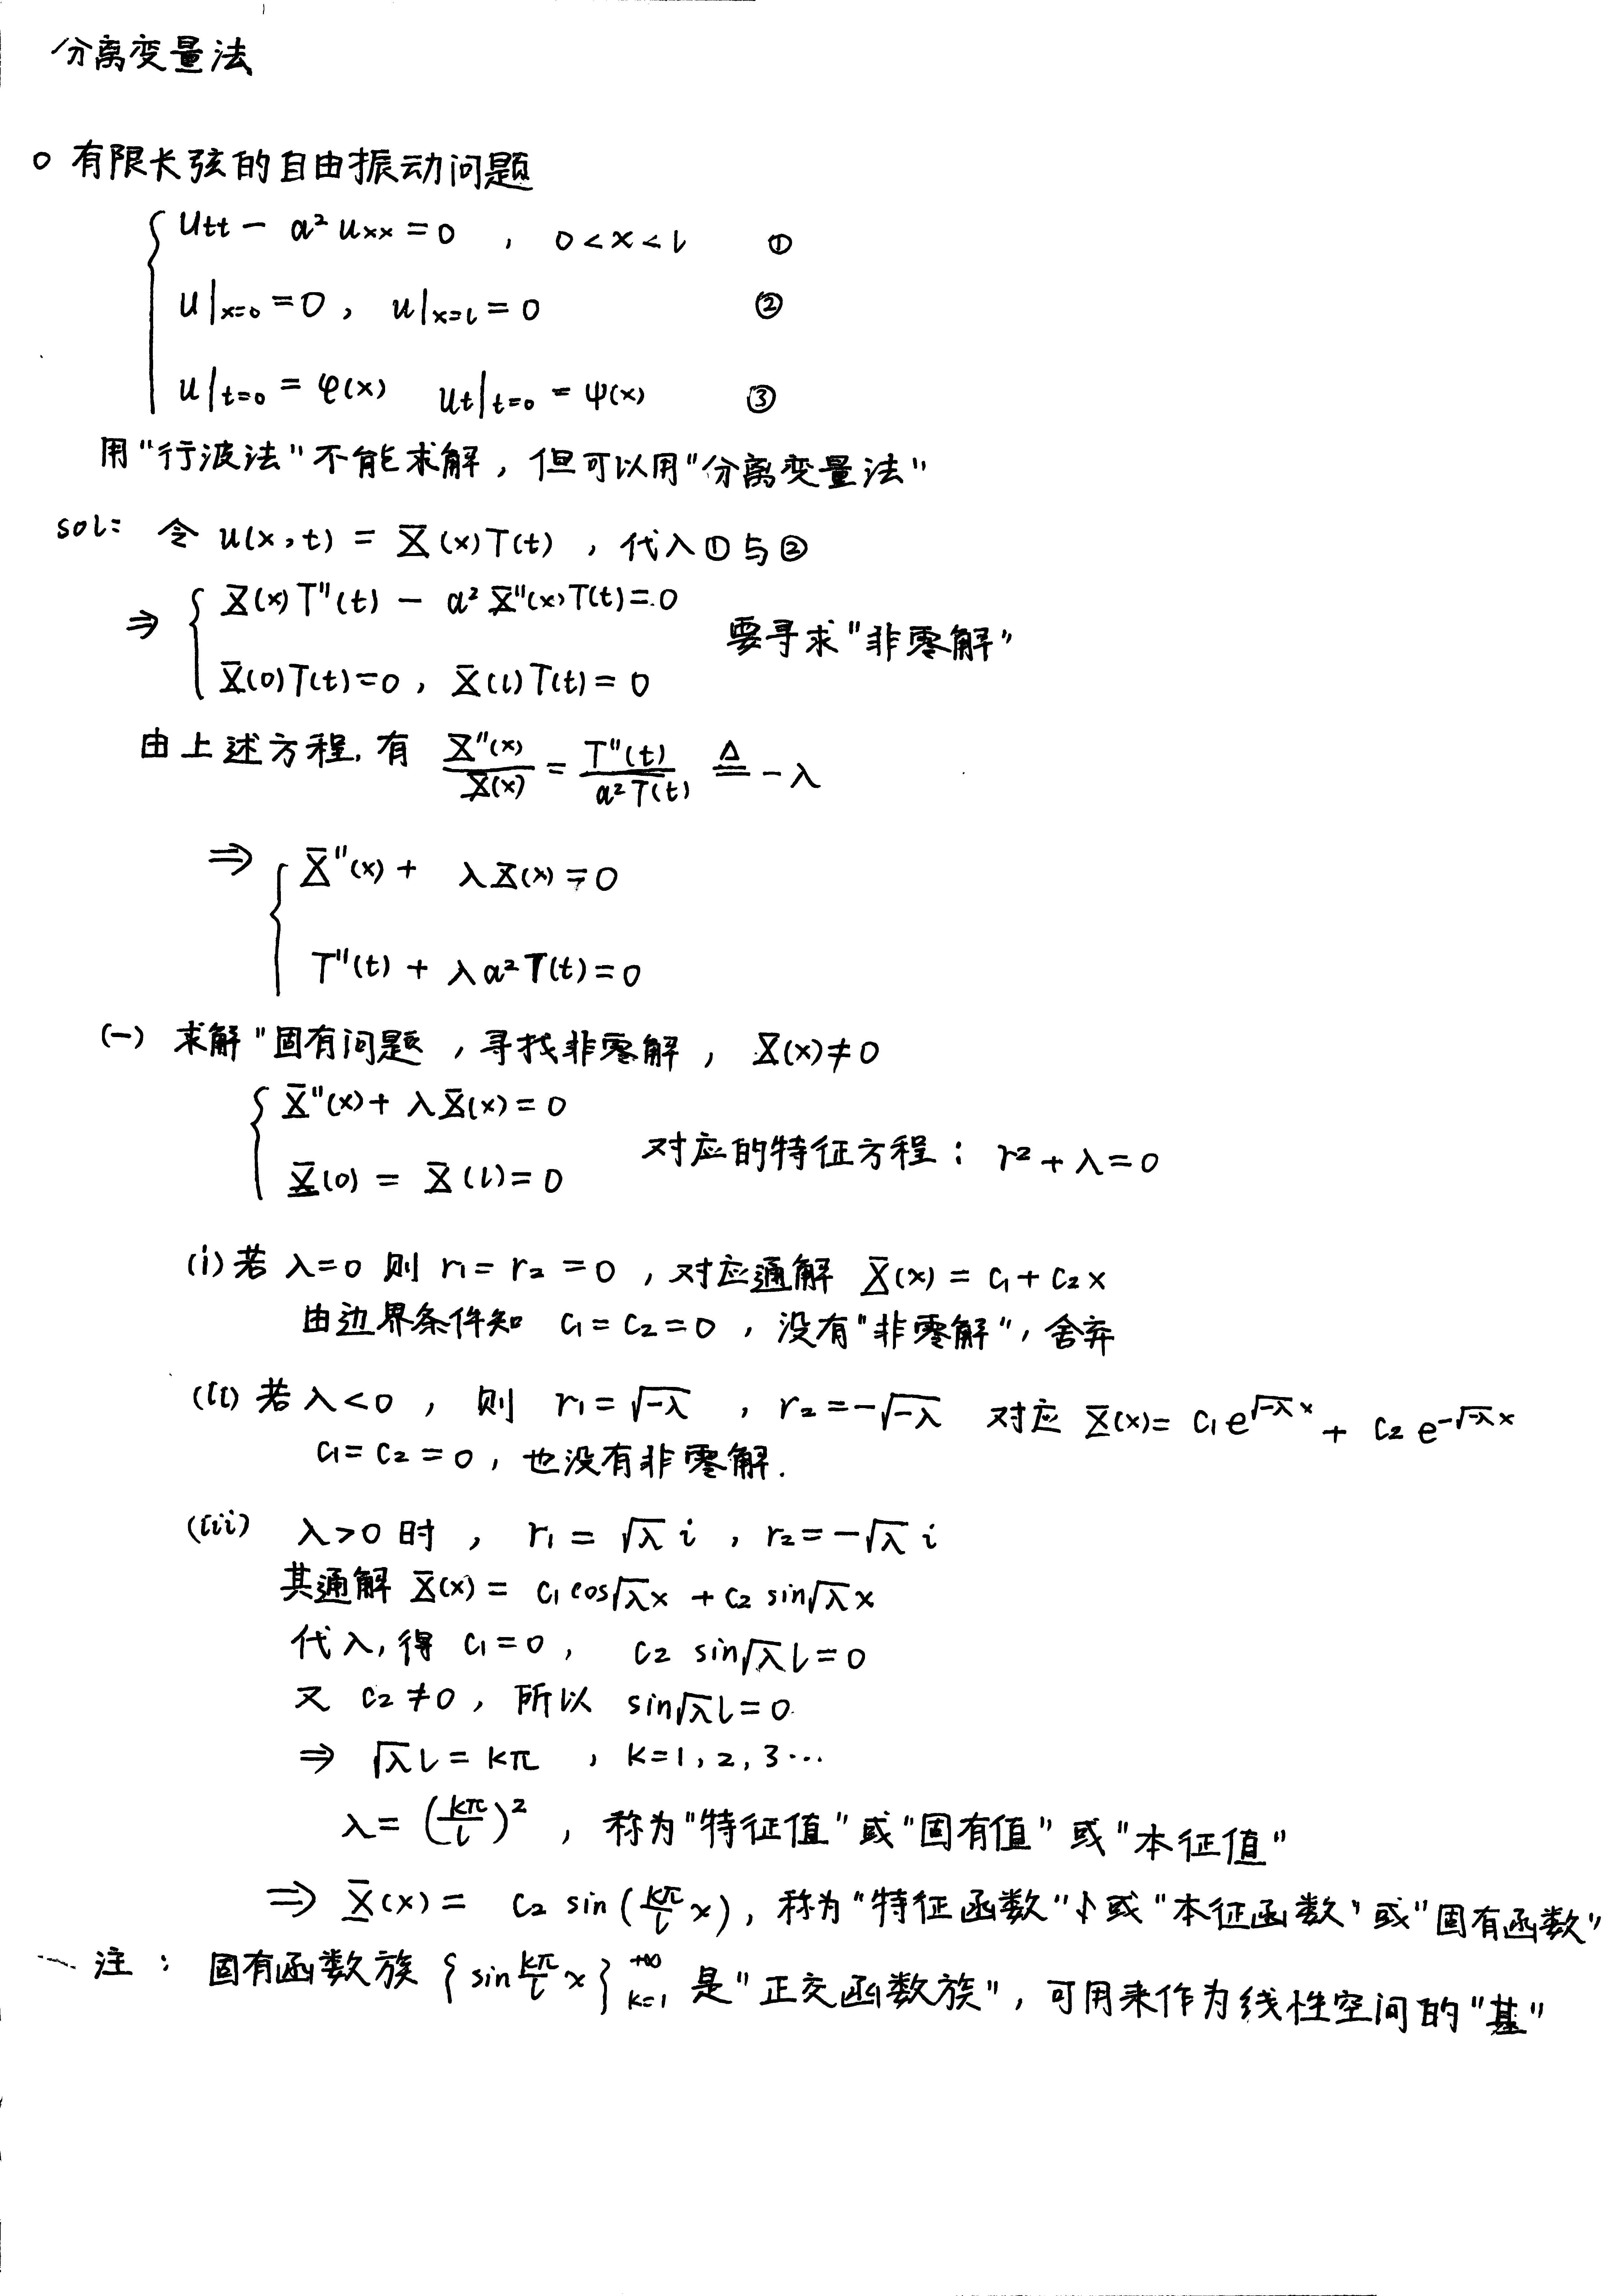 分离变量法
o 有限长弦的自由振动问题
{ utt − a² uxx = 0 , 0 < x < l ①
u|x=0 = 0 , u|x=l = 0 ②
u|t=0 = φ(x) ut|t=0 = ψ(x) ③
用"行波法"不能求解, 但可以用"分离变量法"
sol: 令 u(x,t) = X(x)T(t) , 代入①与②
⇒ { X(x)T''(t) − a² X''(x)T(t)=0
要寻求"非零解"
X(0)T(t)=0 , X(l)T(t)=0
由上述方程, 有 X''(x)/X(x) = T''(t)/a²T(t) ≜ −λ
⇒ { X''(x) + λX(x) = 0
T''(t) + λa²T(t)=0
(一) 求解"固有问题 , 寻找非零解 , X(x)≠0
{ X''(x)+ λX(x)=0
对应的特征方程: r²+λ=0
X(0) = X(l)=0
(i) 若 λ=0 则 r1= r2 =0 , 对应通解 X(x) = c1+ c2x
由边界条件知 c1= c2=0 , 没有"非零解", 舍弃
(ii) 若 λ<0 , 则 r1=√-λ , r2=−√-λ 对应 X(x)= c1 e^√-λ x + c2 e^-√-λ x
c1= c2 = 0 , 也没有非零解.
(iii) λ>0 时 , r1 = √λ i , r2=−√λ i
其通解 X(x)= c1 cos√λx + c2 sin√λx
代入, 得 c1=0 , c2 sin√λl=0
又 c2≠0 , 所以 sin√λl=0
⇒ √λl= kπ , k=1, 2, 3 ⋯
λ= (kπ/l)² , 称为"特征值"或"固有值"或"本征值"
⇒ X(x)= c2 sin(kπ/l x), 称为"特征函数"或"本征函数"或"固有函数"
注 : 固有函数族 {sin kπ/l x}+∞ k=1 是"正交函数族", 可用来作为线性空间的"基"